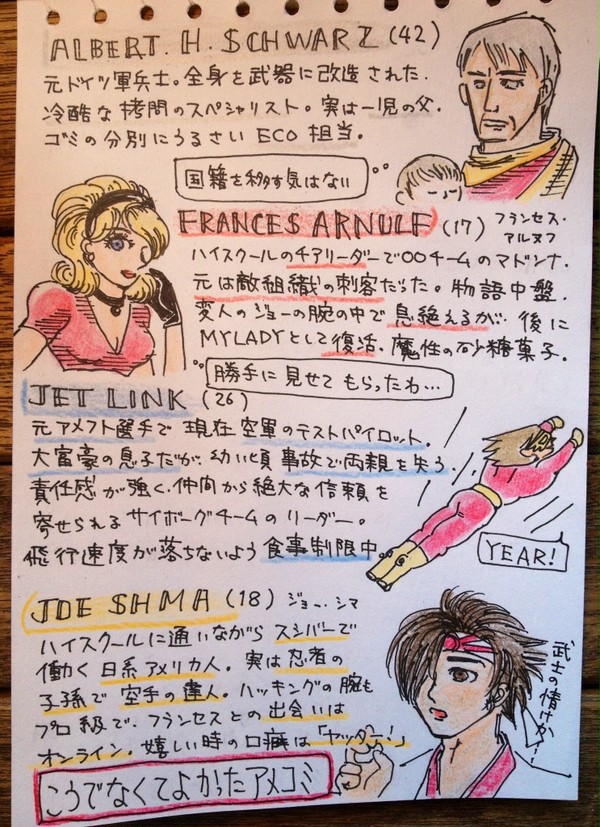 ALBERT. H. SCHWARZ (42)
元ドイツ軍兵士。全身を武器に改造された.
冷酷な拷問のスペシャリスト。実は一児の父.
ゴミの分別にうるさいECO担当。
国籍を移す気はない
FRANCES ARNULF (17) フランセス・
アルヌフ
ハイスクールのチアリーダーで〇〇チームのマドンナ.
元は敵組織の刺客だった。物語中盤.
変人のジョーの腕の中で息絶えるが、後に
MYLADYとして復活、魔性の砂糖菓子.
勝手に見せてもらったわ…
JET LINK (26)
元アメフト選手で現在空軍のテストパイロット.
大富豪の息子だが、幼い頃事故で両親を失う.
責任感が強く、仲間から絶大な信頼を
寄せられるサイボーグチームのリーダー。
飛行速度が落ちないよう食事制限中。
YEAR!
JOE SHMA (18) ジョー・シマ
ハイスクールに通いながらスシバーで
働く日系アメリカ人。実は忍者の
子孫で空手の達人。ハッキングの腕も
プロ級で、フランセスとの出会いは
オンライン。嬉しい時の口癖は「ヤッター!」
武士の情けか!!
こうでなくてよかったアメコミ